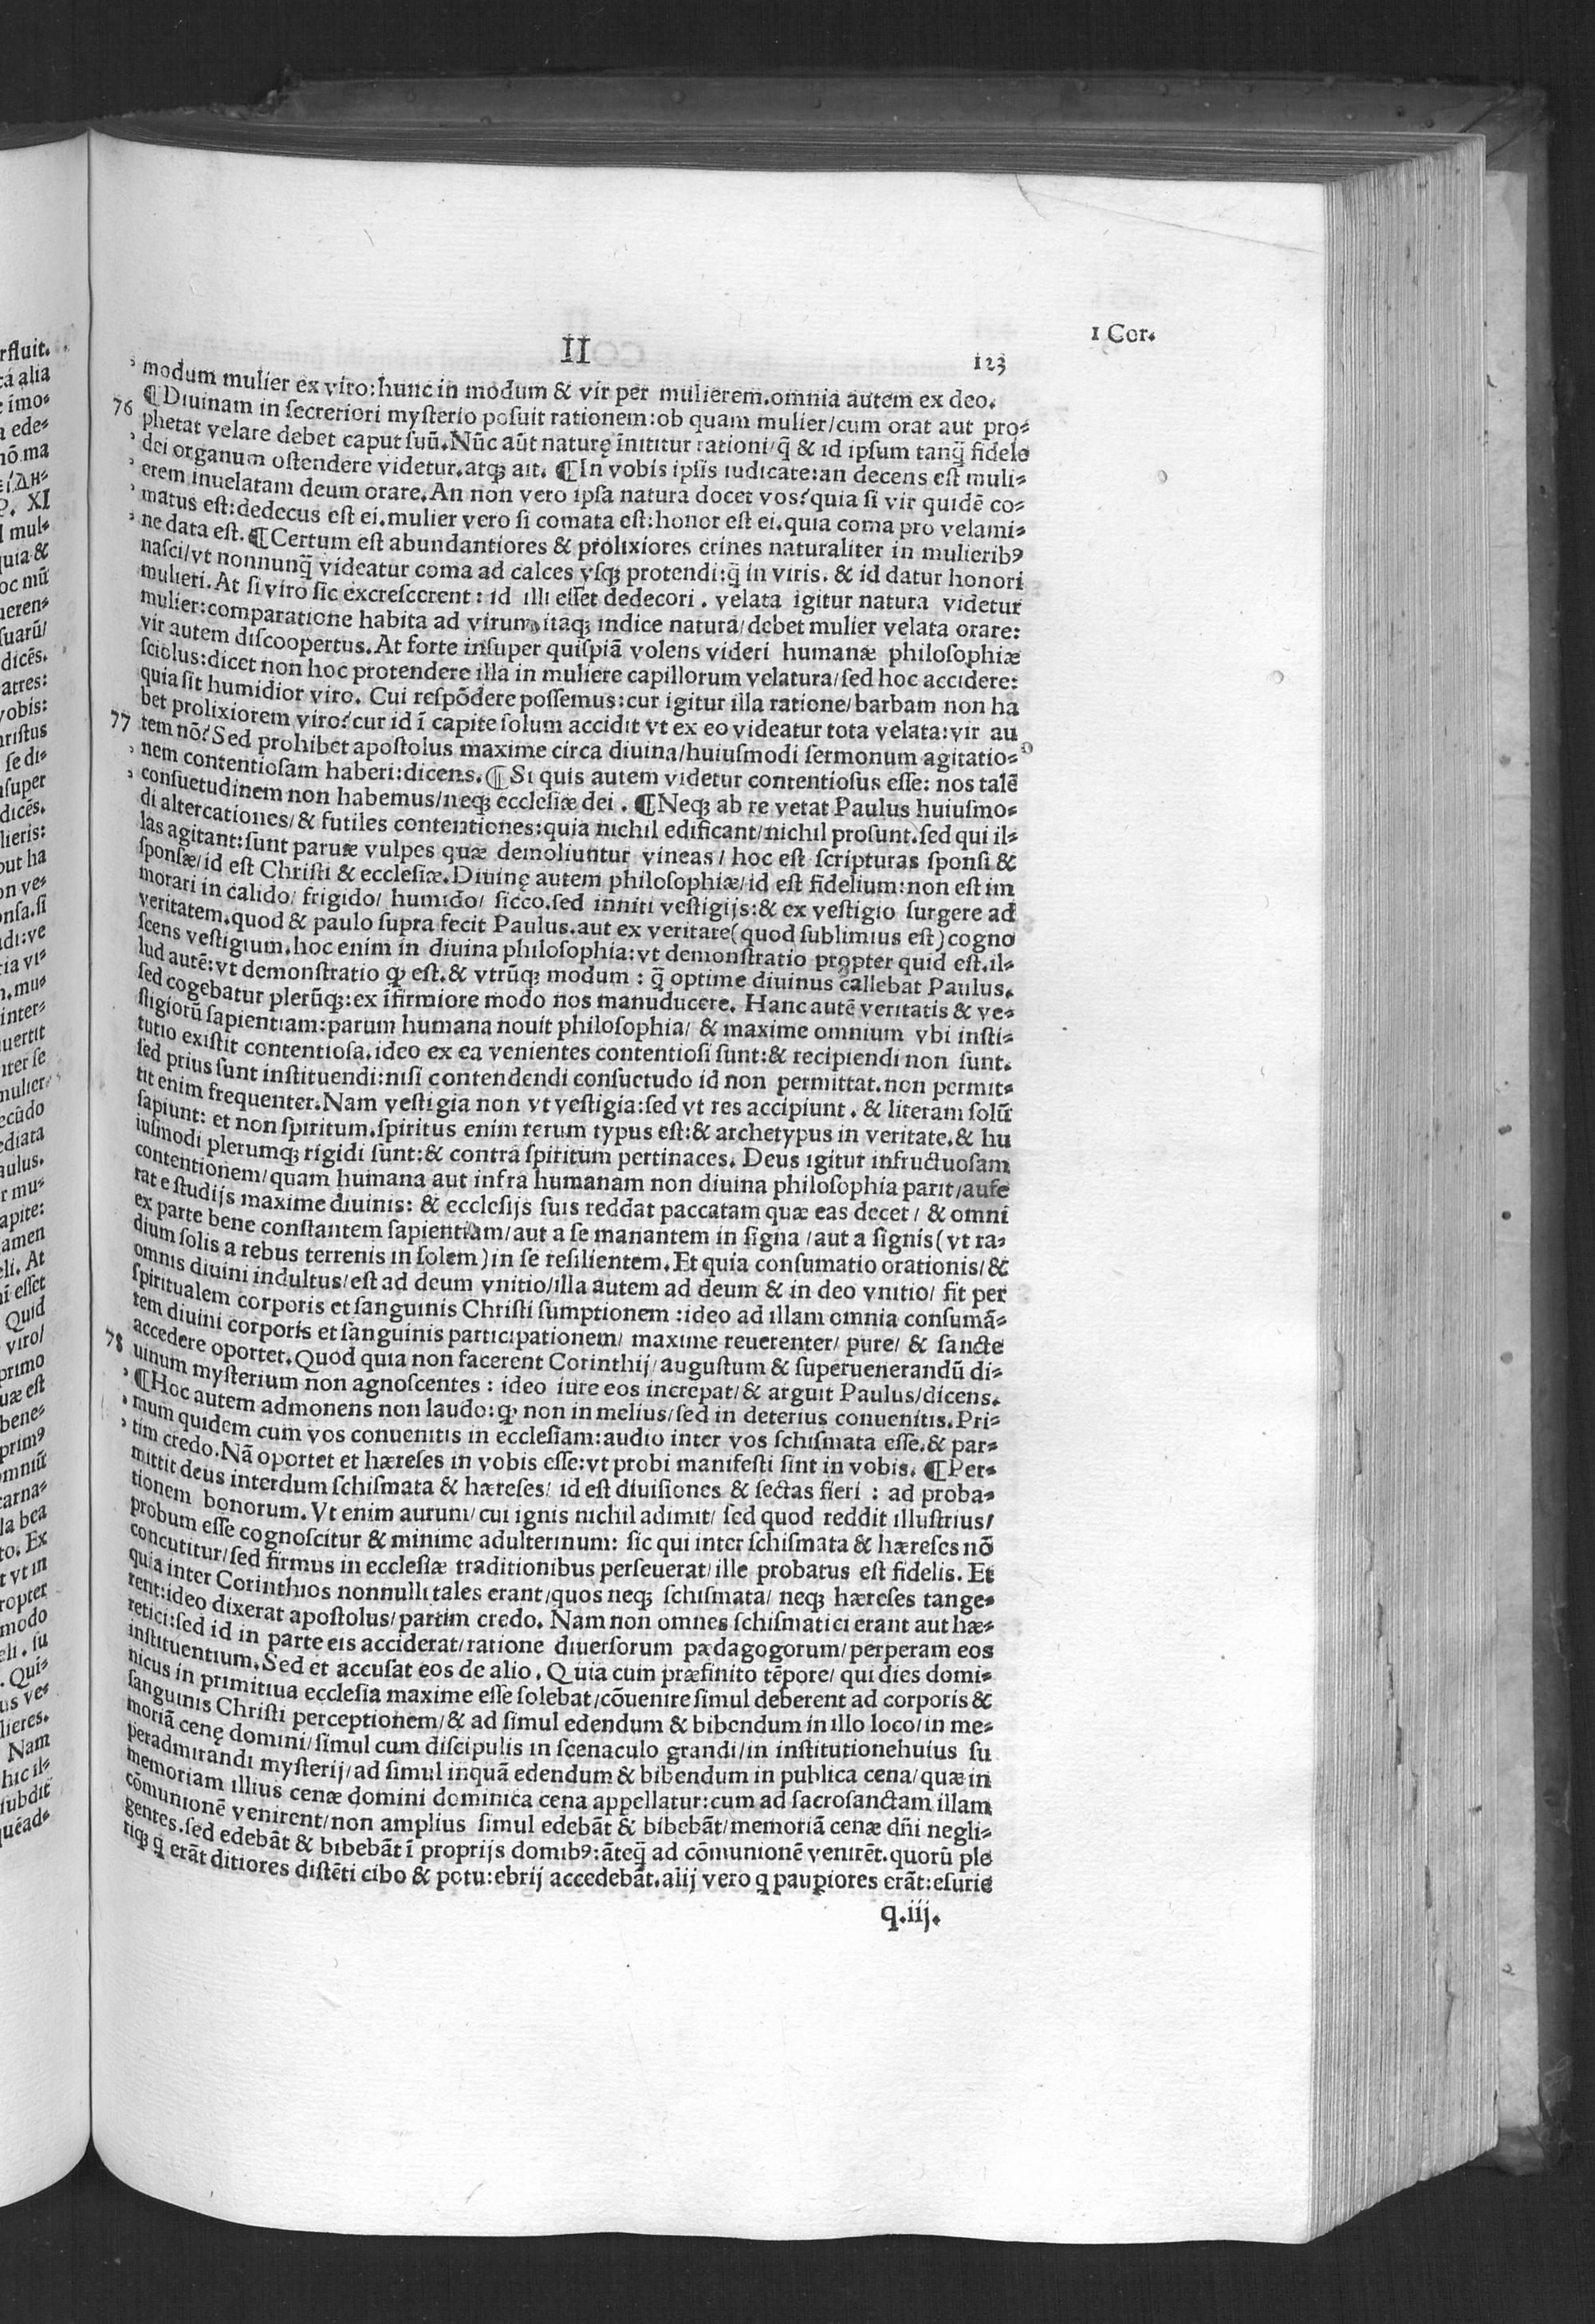 II
1 Cor.
123
modum mulier ex viro:hunc in modum & vir per mulierem.omnia autem ex deo.
76 ¶Diuinam in secretiori mysterio posuit rationem:ob quam mulier/cum orat aut pro⸗
phetat velare debet caput suũ.Nũc aũt naturę innititur rationi/q̃ & id ipsum tanq̃ fidele
dei organum ostendere videtur.atqꝫ ait. ¶In vobis ipsis iudicate:an decens est muli⸗
erem inuelatam deum orare.An non vero ipsa natura docet vos?quia si vir quidẽ co⸗
matus est:dedecus est ei.mulier vero si comata est:honor est ei.quia coma pro velami⸗
ne data est.¶Certum est abundantiores & prolixiores crines naturaliter in mulieribꝰ
nasci/vt nonnunq̃ videatur coma ad calces vsqꝫ protendi:q̃ in viris. & id datur honori
mulieri. At si viro sic excrescerent: id illi esset dedecori . velata igitur natura videtur
mulier:comparatione habita ad virum.itaqꝫ indice natura/debet mulier velata orare:
vir autem discoopertus.At forte insuper quispiã volens videri humanæ philosophiæ
sciolus:dicet non hoc protendere illa in muliere capillorum velatura/sed hoc accidere:
quia sit humidior viro. Cui respõdere possemus:cur igitur illa ratione/barbam non ha
bet prolixiorem viro?cur id ĩ capite solum accidit vt ex eo videatur tota velata:vir au
77 tem nõ?Sed prohibet apostolus maxime circa diuina/huiusmodi sermonum agitatio⸗
nem contentiosam haberi:dicens.¶Si quis autem videtur contentiosus esse: nos talẽ
consuetudinem non habemus/neqꝫ ecclesiæ dei . ¶Neqꝫ ab re vetat Paulus huiusmo⸗
di altercationes/& futiles contentiones:quia nichil edificant/nichil prosunt.sed qui il⸗
las agitant:sunt paruæ vulpes quæ demoliuntur vineas/ hoc est scripturas sponsi &
sponsæ/id est Christi & ecclesiæ.Diuinę autem philosophiæ/id est fidelium:non est im
morari in calido/ frigido/ humido/ sicco.sed inniti vestigijs:& ex vestigio surgere ad
veritatem.quod & paulo supra fecit Paulus.aut ex veritate(quod sublimius est)cogno
scens vestigium.hoc enim in diuina philosophia:vt demonstratio propter quid est.il⸗
lud autẽ:vt demonstratio ꝙ est.& vtrũqꝫ modum : q̃ optime diuinus callebat Paulus.
sed cogebatur plerũqꝫ:ex ĩfirmiore modo nos manuducere. Hanc autẽ veritatis & ve⸗
stigiorũ sapientiam:parum humana nouit philosophia/ & maxime omnium vbi insti⸗
tutio existit contentiosa.ideo ex ea venientes contentiosi sunt:& recipiendi non sunt.
sed prius sunt instituendi:nisi contendendi consuetudo id non permittat.non permit⸗
tit enim frequenter.Nam vestigia non vt vestigia:sed vt res accipiunt . & literam solũ
sapiunt: et non spiritum.spiritus enim rerum typus est:& archetypus in veritate.& hu
iusmodi plerumqꝫ rigidi sunt:& contra spiritum pertinaces. Deus igitur infructuosam
contentionem/quam humana aut infra humanam non diuina philosophia parit/aufe
rat e studijs maxime diuinis: & ecclesijs suis reddat paccatam quæ eas decet/ & omni
ex parte bene constantem sapientiam/aut a se manantem in signa /aut a signis(vt ra⸗
dium solis a rebus terrenis in solem)in se resilientem.Et quia consumatio orationis/&
omnis diuini indultus/est ad deum vnitio/illa autem ad deum & in deo vnitio/ fit per
spiritualem corporis et sanguinis Christi sumptionem :ideo ad illam omnia consumã⸗
tem diuini corporis et sanguinis participationem/ maxime reuerenter/ pure/ & sancte
accedere oportet.Quod quia non facerent Corinthij/augustum & superuenerandũ di⸗
78 uinum mysterium non agnoscentes : ideo iure eos increpat/& arguit Paulus/dicens.
¶Hoc autem admonens non laudo:ꝙ non in melius/sed in deterius conuenitis.Pri⸗
mum quidem cum vos conuenitis in ecclesiam:audio inter vos schismata esse.& par⸗
tim credo.Nã oportet et hæreses in vobis esse:vt probi manifesti sint in vobis. ¶Per⸗
mittit deus interdum schismata & hæreses/ id est diuisiones & sectas fieri : ad proba⸗
tionem bonorum.Vt enim aurum/cui ignis nichil adimit/ sed quod reddit illustrius/
probum esse cognoscitur & minime adulterinum: sic qui inter schismata & hæreses nõ
concutitur/sed firmus in ecclesiæ traditionibus perseuerat/ille probatus est fidelis. Et
quia inter Corinthios nonnulli tales erant/quos neqꝫ schismata/ neqꝫ hæreses tange⸗
rent:ideo dixerat apostolus/partim credo. Nam non omnes schismatici erant aut hæ⸗
retici:sed id in parte eis acciderat/ratione diuersorum pædagogorum/perperam eos
instituentium.Sed et accusat eos de alio.Quia cum præfinito tẽpore/ qui dies domi⸗
nicus in primitiua ecclesia maxime esse solebat/cõuenire simul deberent ad corporis &
sanguinis Christi perceptionem/& ad simul edendum & bibendum in illo loco/in me⸗
moriã cenę domini/simul cum discipulis in scenaculo grandi/in institutionehuius su
peradmirandi mysterij/ad simul inquã edendum & bibendum in publica cena/quæ in
memoriam illius cenæ domini dominica cena appellatur:cum ad sacrosanctam illam
cõmunionẽ venirent/non amplius simul edebãt & bibebãt/memoriã cenæ dñi negli⸗
gentes.sed edebãt & bibebãt ĩ proprijs domibꝰ:ãteq̃ ad cõmunionẽ venirẽt.quorũ ple
riqꝫ q̃ erãt ditiores distẽti cibo & potu:ebrij accedebãt.alij vero q pauꝑiores erãt:esurie
q.iij.